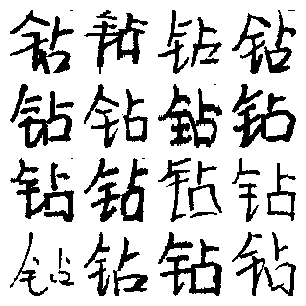 钻钻钻钻
钻钻钻钻
钻钻钻钻
钻钻钻钻